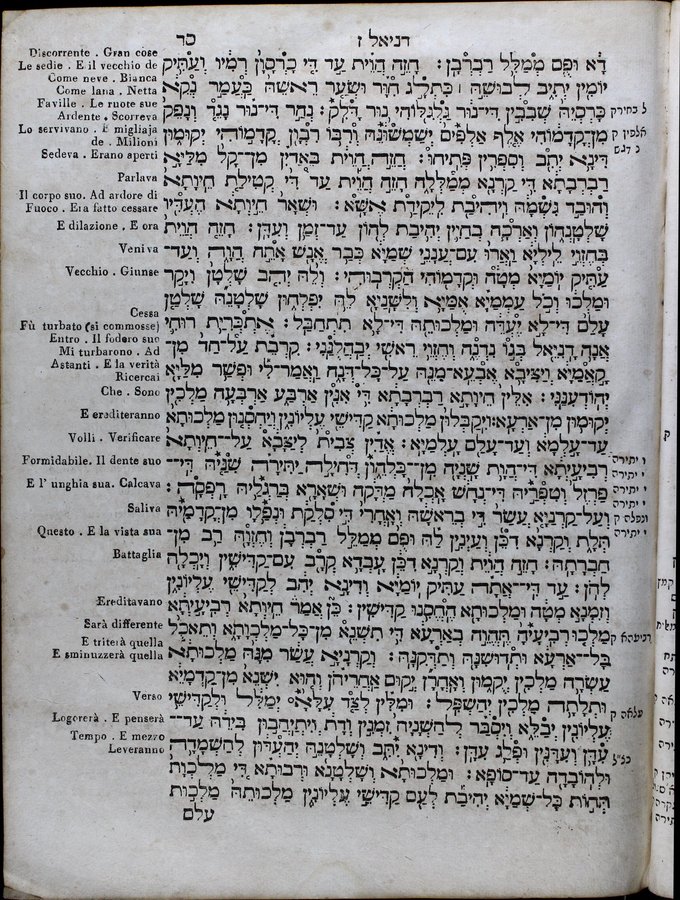 דניאל ז
כד
דא ופם ממלל רברבן: חזה הוית עד די כרסון רמיו ועתיק
יומין יתיב לבושה כתלג חור ושער ראשה כעמר נקא
כרסיה שביבין די־נור גלגלוהי נור דלק: נהר די־נור נגד ונפק
מן־קדמוהי אלף אלפים ישמשונה ורבו רבון קדמוהי יקומון
דינא יתב וספרין פתיחו: חזה הוית באדין מן־קל מליא
רברבתא די קרנא ממללה חזה הוית עד די קטילת חיותא
והובד גשמה ויהיבת ליקידת אשא: ושאר חיותא העדיו
שלטנהון וארכה בחיין יהיבת להון עד־זמן ועדן: חזה הוית
בחזוי ליליא וארו עם־ענני שמיא כבר אנש אתה הוה ועד־
עתיק יומיא מטה וקדמוהי הקרבוהי: ולה יהב שלטן ויקר
ומלכו וכל עממיא אמיא ולשניא לה יפלחון שלטנה שלטן
עלם די־לא יעדה ומלכותה די־לא תתחבל: אתכרית רוחי
אנה דניאל בגו נדנה וחזוי ראשי יבהלנני: קרבת על־חד מן־
קאמיא ויציבא אבעא־מנה על־כל־דנה ואמר־לי ופשר מליא
יהודענני: אלין חיותא רברבתא די אנין ארבע ארבעה מלכין
יקומון מן־ארעא: ויקבלון מלכותא קדישי עליונין ויחסנון מלכותא
עד־עלמא ועד־עלם עלמיא: אדין צבית ליצבא על־חיותא
רביעיתא די־הות שניה מן־כלהון דחילה יתירה שניה די־
פרזל וטפריה די־נחש אכלה מדקה ושארא ברגליה רפסה:
ועל־קרניא עשר די בראשה ואחרי די סלקת ונפלו מן־קדמיה
תלת וקרנא דכן ועינין לה ופם ממלל רברבן וחזוה רב מן־
חברתה: חזה הוית וקרנא דכן עבדא קרב עם־קדישין ויכלה
להן: עד די־אתה עתיק יומיא ודינא יהב לקדישי עליונין
וזמנא מטה ומלכותא החסנו קדישין: כן אמר חיותא רביעיתא
מלכו רביעיה תהוה בארעא די תשנא מן־כל־מלכותא ותאכל
כל־ארעא ותדושנה ותדקנה: וקרניא עשר מנה מלכותא
עשרה מלכין יקמון ואחרן יקום אחריהון והוא ישנא מן־קדמיא
ותלתה מלכין יהשפל: ומלין לצד עליא ימלל ולקדישי
עליונין יבלא ויסבר להשניה זמנין ודת ויתיהבון בידה עד־
עדן ועדנין ופלג עדן: ודינא יתב ושלטנה יהעדון להשמדה
ולהובדה עד־סופא: ומלכותא ושלטנא ורבותא די מלכות
תחות כל־שמיא יהיבת לעם קדישי עליונין מלכותה מלכות
עלם
Discorrente . Gran cose
Le sedie . E il vecchio de
Come neve . Bianca
Come lana . Netta
Faville . Le ruote sue
Ardente . Scorreva
Lo servivano . E migliaja
de . Milioni
Sedeva . Erano aperti
Parlava
Il corpo suo. Ad ardore di
Fuoco . Era fatto cessare
E dilazione . E ora
Veniva
Vecchio . Giunse
Cessa
Fù turbato (si commosse)
Entro . Il fodero suo
Mi turbarono . Ad
Astanti . E la verità
Ricercai
Che . Sono
E erediteranno
Volli . Verificare
Formidabile. Il dente suo
E l' unghia sua. Calcava
Saliva
Questo . E la vista sua
Battaglia
Ereditavano
Sarà differente
E triterà quella
E sminuzzerà quella
Verso
Logorerà . E penserà
Tempo . E mezzo
Leveranno
ל בחירק
אלפין ק
נ דגש
ו יתירה
י יתירה
י יתירה
י יתירה
ונפלה ק
י יתירה
רביעאה ק
עלאה ק